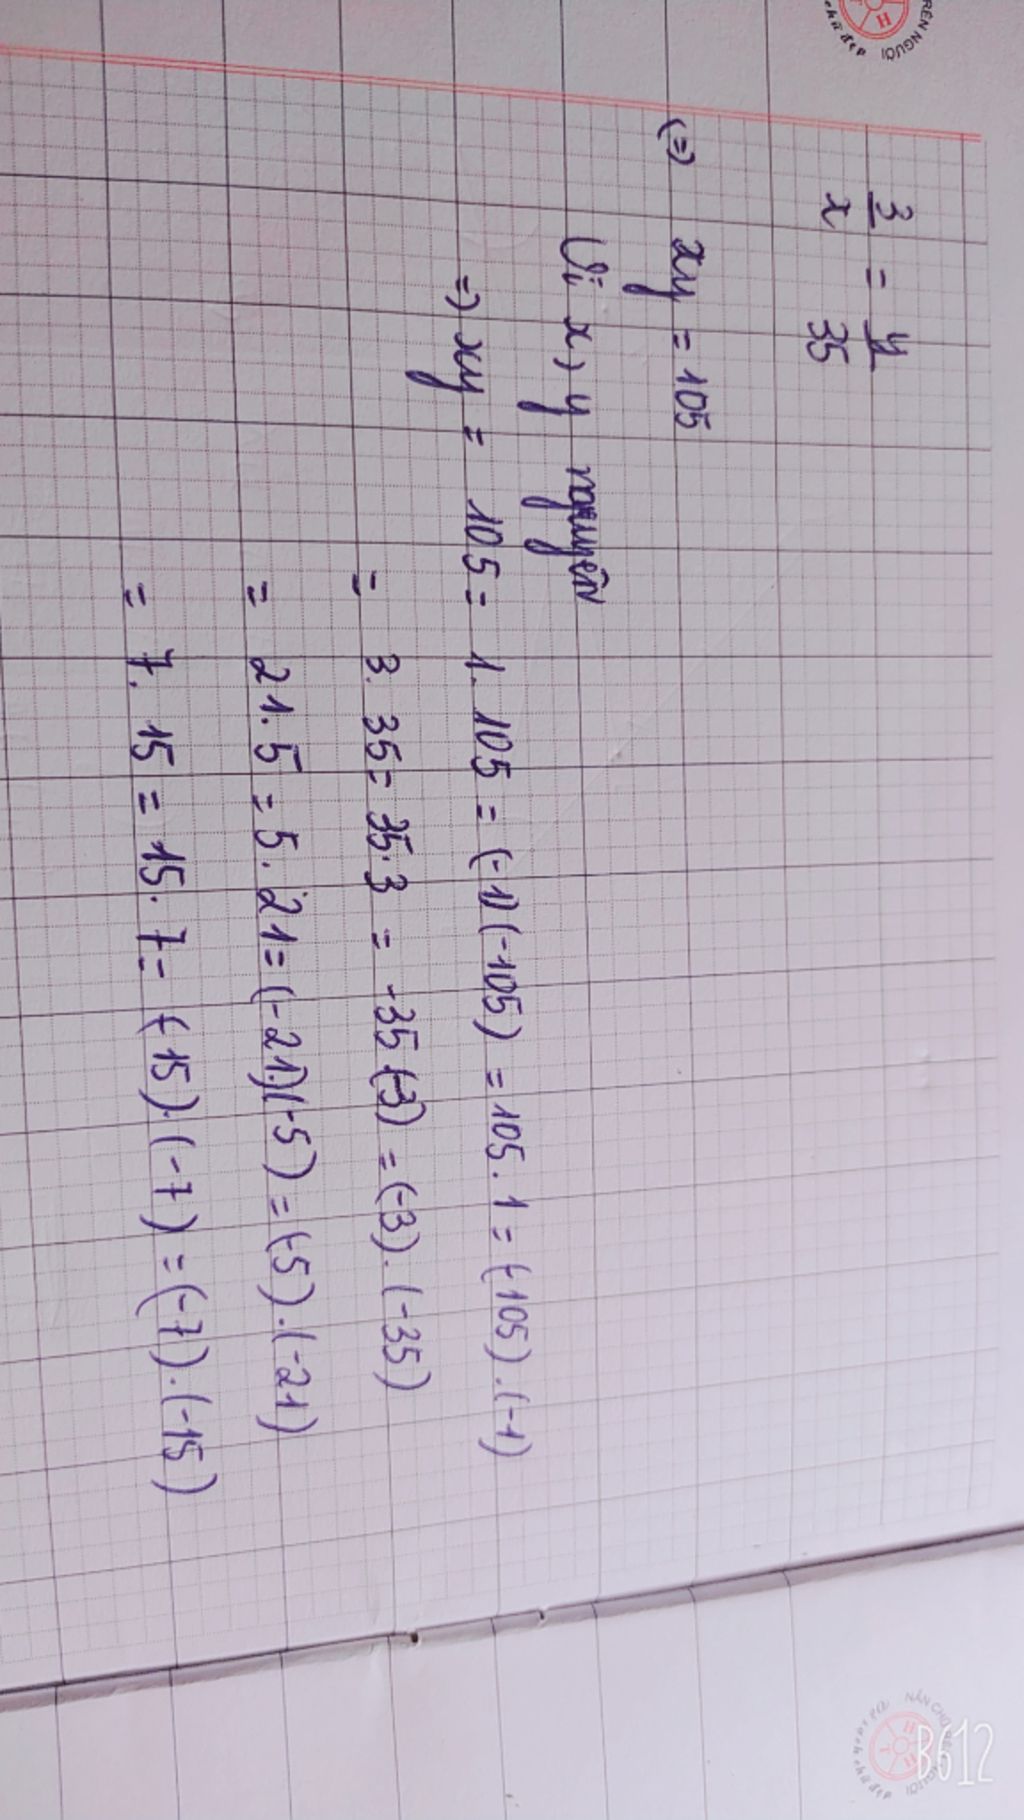 3/x = y/35
(=) xy = 105
Vì x, y nguyên
=) xy = 105 = 1. 105 = (-1)(-105) = 105. 1 = (-105).(-1)
= 3. 35 = 35. 3 = -35(-3) = (-3).(-35)
= 21. 5 = 5. 21 = (-21)(-5) = (-5).(-21)
= 7. 15 = 15. 7 = (-15).(-7) = (-7).(-15)
B612